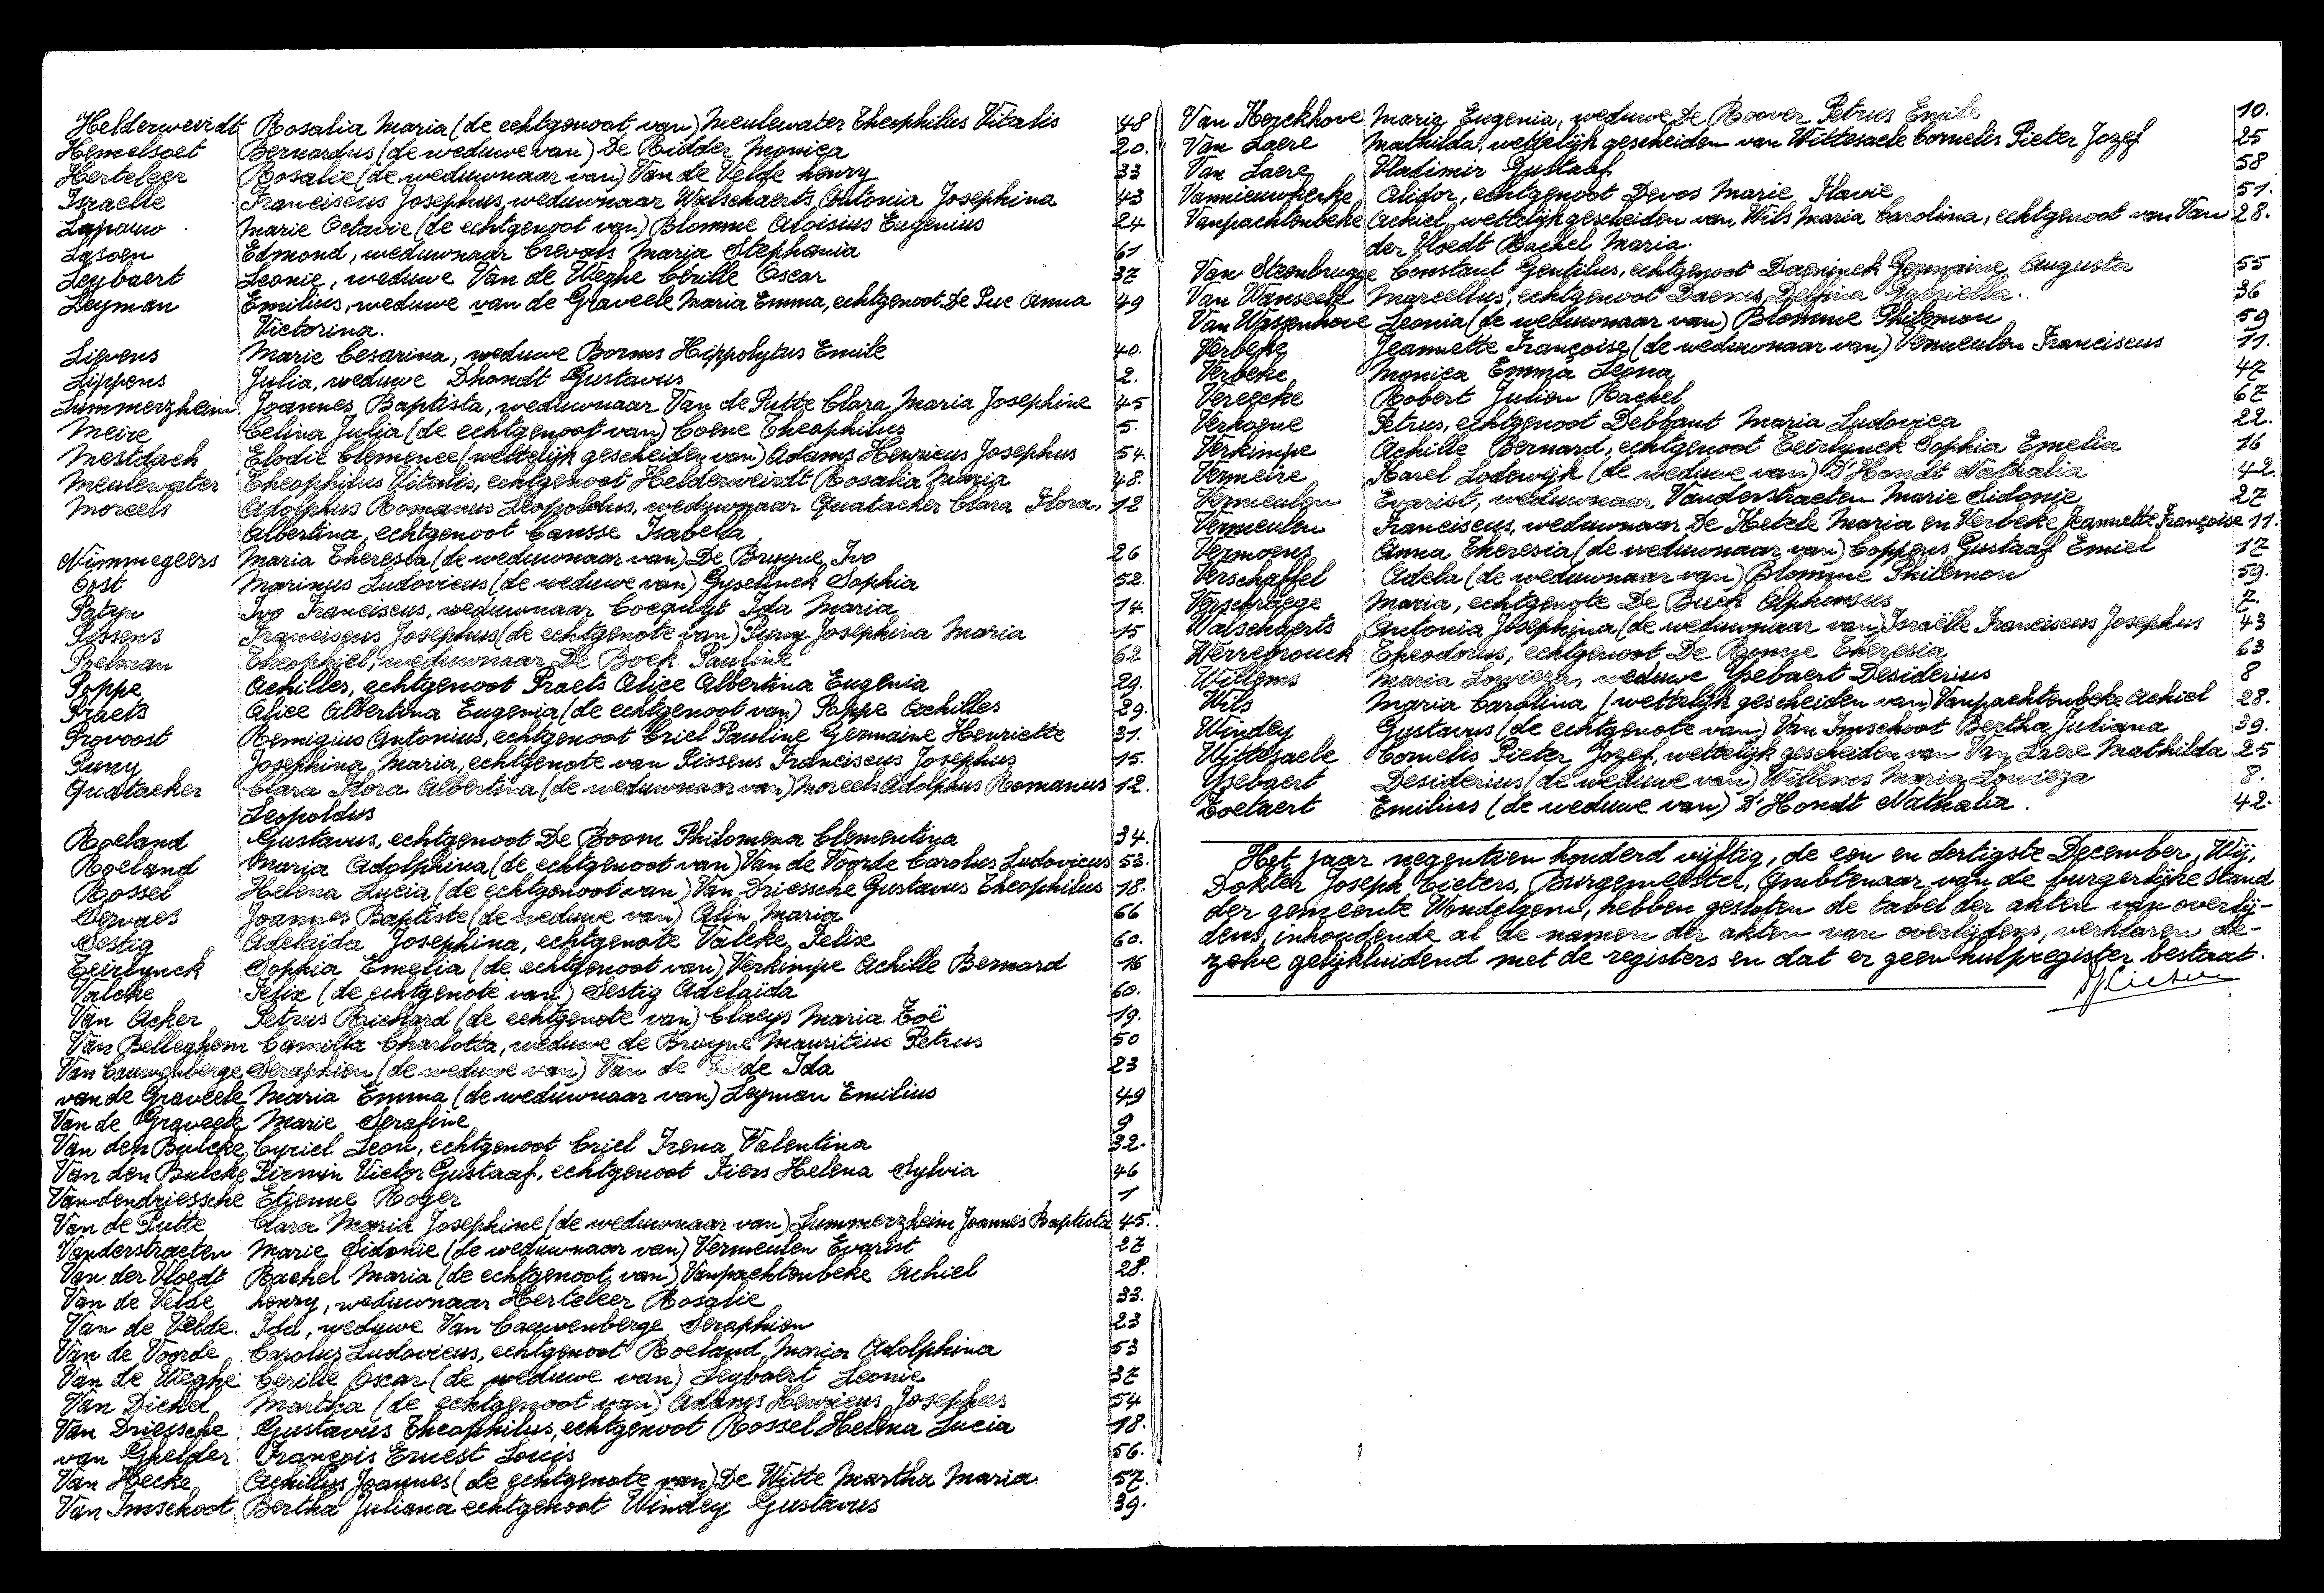 Helderweirdt Rosalia Maria (de echtgenoot van) Meulewater Theophilus Vitalis 48
Hemelsoet Bernardus (de weduwe van) De Ridder Monica 20.
Herteleer Rosalie (de weduwnaar van) Van de Velde henry 33
Israelle Franciscus Josephus, weduwnaar Walschaerts Antonia Josephina 43
Lapauw Marie Octavie (de echtgenoot van) Blomme Aloisius Eugenius 24
Lasoen Edmond, weduwnaar Crevals Maria Stephania 61
Leybaert Leonie, weduwe Van de Weghe Cerille Oscar 37
Leyman Emilius, weduwe van de Graveele Maria Emma, echtgenoot De Pue Anna 49
Victorina.
Lievens Marie Cesarina, weduwe Borms Hippolytus Emile 40.
Lippens Julia, weduwe Dhondt Gustavus 2.
Lummerzheim Joannes Baptista, weduwnaar Van de Putte Clara Maria Josephine 45
Meire Celina Julia (de echtgenoot van) Coene Theophilus 5.
Mestdach Elodie Clemence (wettelijk gescheiden van) Adams Henricus Josephus 54.
Meulewater Theophilus Vitalis, echtgenoot Helderweirdt Rosalia Maria 48.
Moreels Adolphus Romanus Leopoldus, weduwnaar Quatacker Clara Flora. 12
Albertina, echtgenoot Causse Isabella
Nimmegeers Maria Theresia (de weduwnaar van) De Bruyne Ivo 26
Oost Marinus Ludovicus (de weduwe van) Gyselinck Sophia 52.
Patyn Ivo Franciscus, weduwnaar Coeguyt Ida Maria 14.
Pissens Franciscus Josephus (de echtgenote van) Puwy Josephina Maria 15
Poelman Theophiel, weduwnaar De Bock Pauline 62
Poppe Achilles, echtgenoot Praets Alice Albertina Eugenia 29.
Praets Alice Albertina Eugenia (de echtgenoot van) Poppe Achilles 29.
Provoost Remigius Antonius, echtgenoot Criel Pauline Germaine Henriette 31.
Puwy Josephina Maria, echtgenote van Pissens Franciscus Josephus 15.
Quatacker Clara Flora Albertina (de weduwnaar van) Moreels Adolphus Romanus 12.
Leopoldus
Roeland Gustavus, echtgenoot De Boom Philomena Clementina 34.
Roeland Maria Adolphina (de echtgenoot van) Van de Voorde Carolus Ludovicus 53.
Rossel Helena Lucia (de echtgenoot van) Van Driessche Gustavus Theophilus 18.
Servaes Joannes Baptiste (de weduwe van) Alin Maria 66
Sestig Adelaïda Josephina, echtgenote Valcke Felix 60.
Teirlynck Sophia Emelia (de echtgenoot van) Verkimpe Achille Bernard 16
Valcke Felix (de echtgenote van) Sestig Adelaïda 60.
Van Acker Petrus Richard (de echtgenote van) Claeys Maria Zoë 19.
Van Belleghem Camilla Charlotta, weduwe de Bruyne Mauritius Petrus 50
Van Cauwenberge Seraphien (de weduwe van) Van de Velde Ida 23
van de Graveele Maria Emma (de weduwnaar van) Leyman Emilius 49
Van de Graveele Marie Serafine 9
Van den Bulcke Cyriel Leon, echtgenoot Criel Irena Valentina 32.
Van den Bulcke Firmin Victor Gustaaf, echtgenoot Fiers Helena Sylvia 46
Vandendriessche Etienne Roger 1
Van de Putte Clara Maria Josephine (de weduwnaar van) Lummerzheim Joannes Baptista 45.
Vanderstraeten Marie Sidonie (de weduwnaar van) Vermeulen Evarist 27
Van der Vloedt Rachel Maria (de echtgenoot van) Vanpachtenbeke Achiel 28.
Van de Velde henry, weduwnaar Herteleer Rosalie 33.
Van de Velde. Ida, weduwe Van Cauwenberge Seraphien 23
Van de Voorde Carolus Ludovicus, echtgenoot Roeland Maria Adolphina 53
Van de Weghe Cerille Oscar (de weduwe van) Leybaert Leonie 37
Van Dickel Martha (de echtgenoot van) Adams Henricus Josephus 54
Van Driessche Gustavus Theophilus, echtgenoot Rossel Helena Lucia 18.
van Ghelder François Ernest Louis 56.
Van Hecke Achillus Joannes (de echtgenote van) De Witte Martha Maria 57.
Van Imschoot Bertha Juliana echtgenoot Windey Gustavus 39.
Van Kerckhove Maria Eugenia, weduwe De Roover Petrus Emile 10.
Van Laere Mathilda, wettelijk gescheiden van Wittesaele Cornelis Pieter Jozef 25
Van Laere Vladimir Gustaaf 58
Vannieuwkerke Alidor, echtgenoot Devos Marie Flavie 51.
Vanpachtenbeke Achiel, wettelijk gescheiden van Wils Maria Carolina, echtgenoot van Van 28.
der Vloedt Rachel Maria.
Van Steenbrugge Constant Gentilus, echtgenoot Daeninck Germaine Augusta 55
Van Wanseele Marcellus, echtgenoot Daenes Delfina Gabriella. 36
Van Wassenhove Leonia (de weduwnaar van) Blomme Philemon 59
Verbeke Jeannette Françoise (de weduwnaar van) Vermeulen Franciscus 11.
Verbeke Monica Emma Leona 47
Vereecke Robert Julien Rachel 67
Verhogne Petrus, echtgenoot Debbaut Maria Ludovica 22.
Verkimpe Achille Bernard, echtgenoot Teirlynck Sophia Emelia 16
Vermeire Karel Lodewijk (de weduwe van) D'Hondt Nathalia 42.
Vermeulen Evarist, weduwnaar Vanderstraeten Marie Sidonie 27
Vermeulen Franciscus, weduwnaar De Ketele Maria en Verbeke Jeannette Françoise 11.
Vermoens Anna Theresia (de weduwnaar van) Coppens Gustaaf Emiel 17
Verschaffel Adela (de weduwnaar van) Blomme Philemon 59.
Verschraege Maria, echtgenote De Buck Alphonsus 7.
Walschaerts Antonia Josephina (de weduwnaar van) Israëlle Franciscus Josephus 43
Werrebrouck Theodorus, echtgenoot De Ronne Theresia 63
Willems Maria Lowieza, weduwe Ysebaert Desiderius 8
Wils Maria Carolina (wettelijk gescheiden van) Vanpachtenbeke Achiel 28.
Windey Gustavus (de echtgenote van) Van Imschoot Bertha Juliana 39.
Wittesaele Cornelis Pieter Jozef, wettelijk gescheiden van Van Laere Mathilda 25
Ysebaert Desiderius (de weduwe van) Willems Maria Lowieza 8.
Zoetaert Emilius (de weduwe van) D'Hondt Nathalia. 42.
Het jaar negentien honderd vijftig, de een en dertigste December, Wij,
Dokter Joseph Cieters, Burgemeester, Ambtenaar van de burgerlijke stand
der gemeente Wondelgem, hebben gesloten de tabel der akten van overlij-
dens, inhoudende al de namen der akten van overlijdens, verklaren de-
zelve gelijkluidend met de registers en dat er geen hulpregister bestaat.